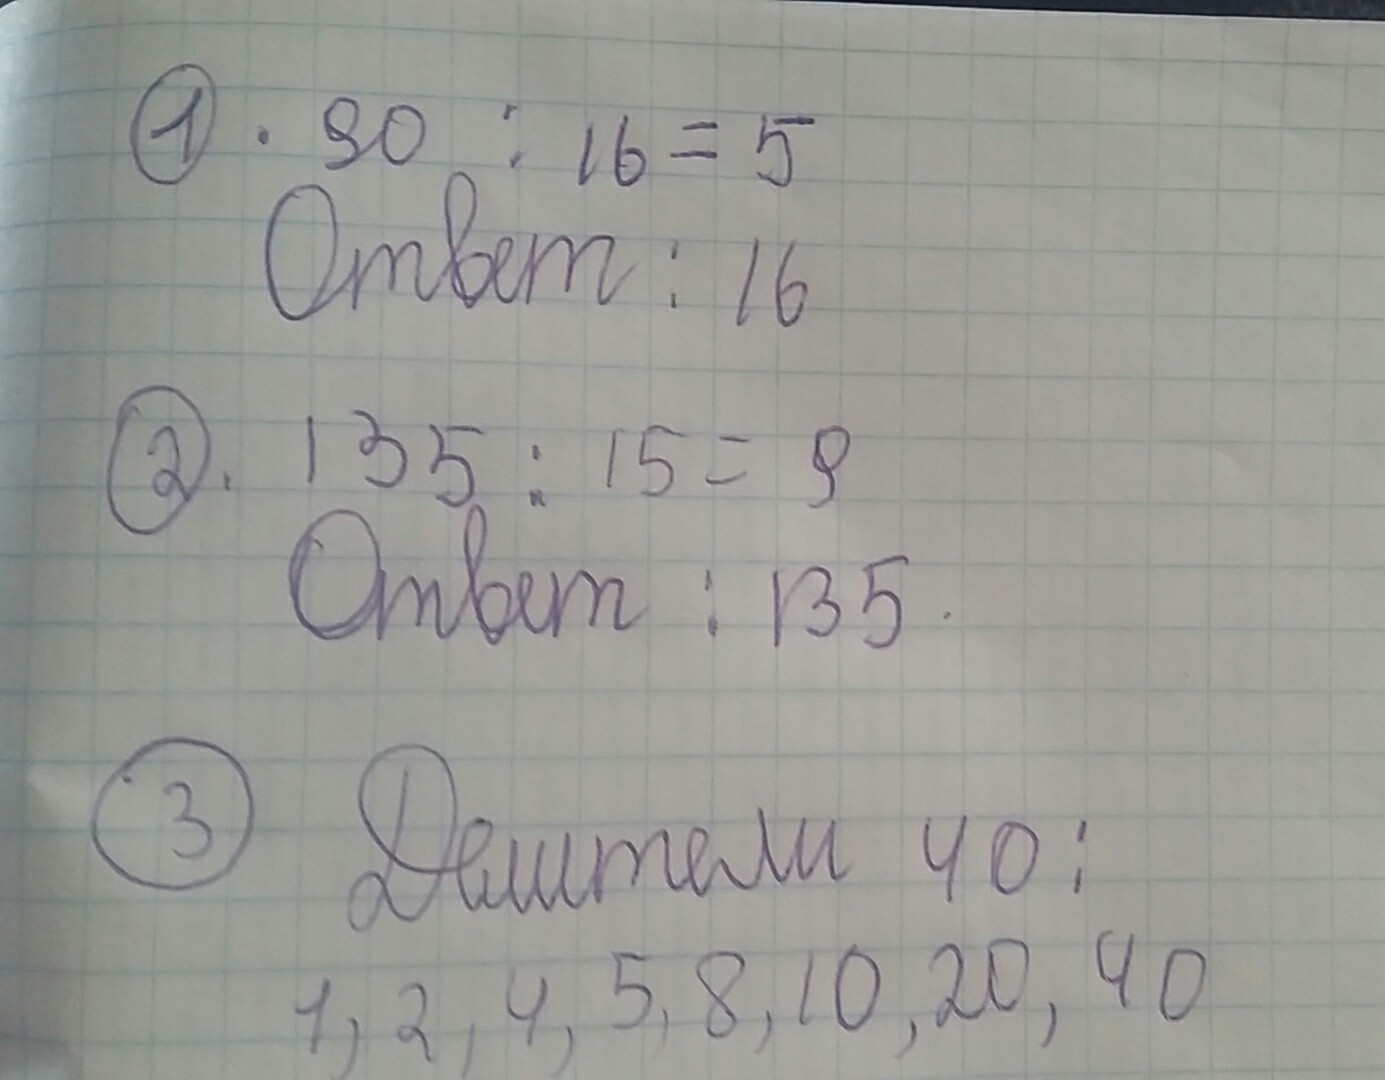 1. 80 : 16 = 5
Ответ : 16
2. 135 : 15 = 9
Ответ : 135.
3 Делители 40 :
1, 2, 4, 5, 8, 10, 20, 40